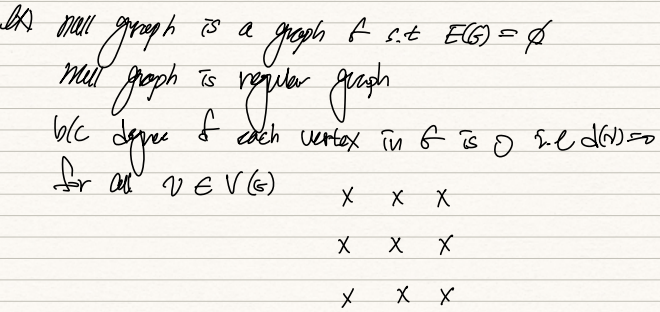 ex) null graph is a graph G s.t E(G) = ∅
null graph is regular graph
b/c degree of each vertex in G is 0 i.e d(v)=0
for all v ∈ V(G)
x x x
x x x
x x x